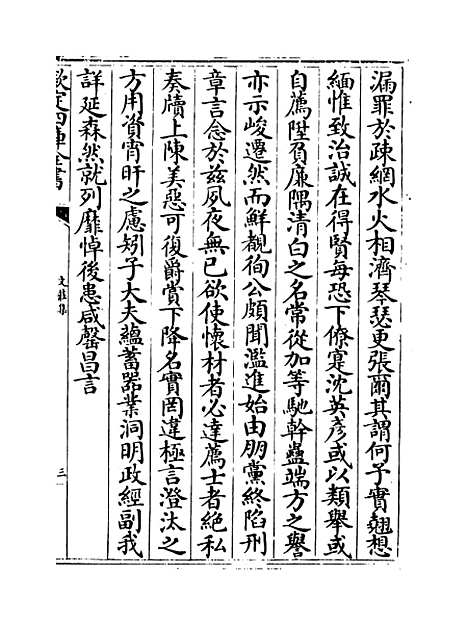 漏罪於疎網水火相濟琴瑟更張爾其謂何予實翹想
緬惟致治誠在得賢每恐下僚寔沈英彦或以類舉或
自薦陞貟廉隅清白之名常從加等馳幹蠱端方之譽
亦示峻遷然而鮮覩徇公頗聞濫進始由朋黨終陷刑
章言念於兹夙夜無已欲使懷材者必達薦士者絶私
奏牘上陳美惡可復爵賞下降名實罔違極言澄汰之
方用資宵旰之慮矧子大夫藴蓄器業洞明政經副我
詳延森然就列靡悼後患咸罄昌言
欽定四庫全書
文莊集
三